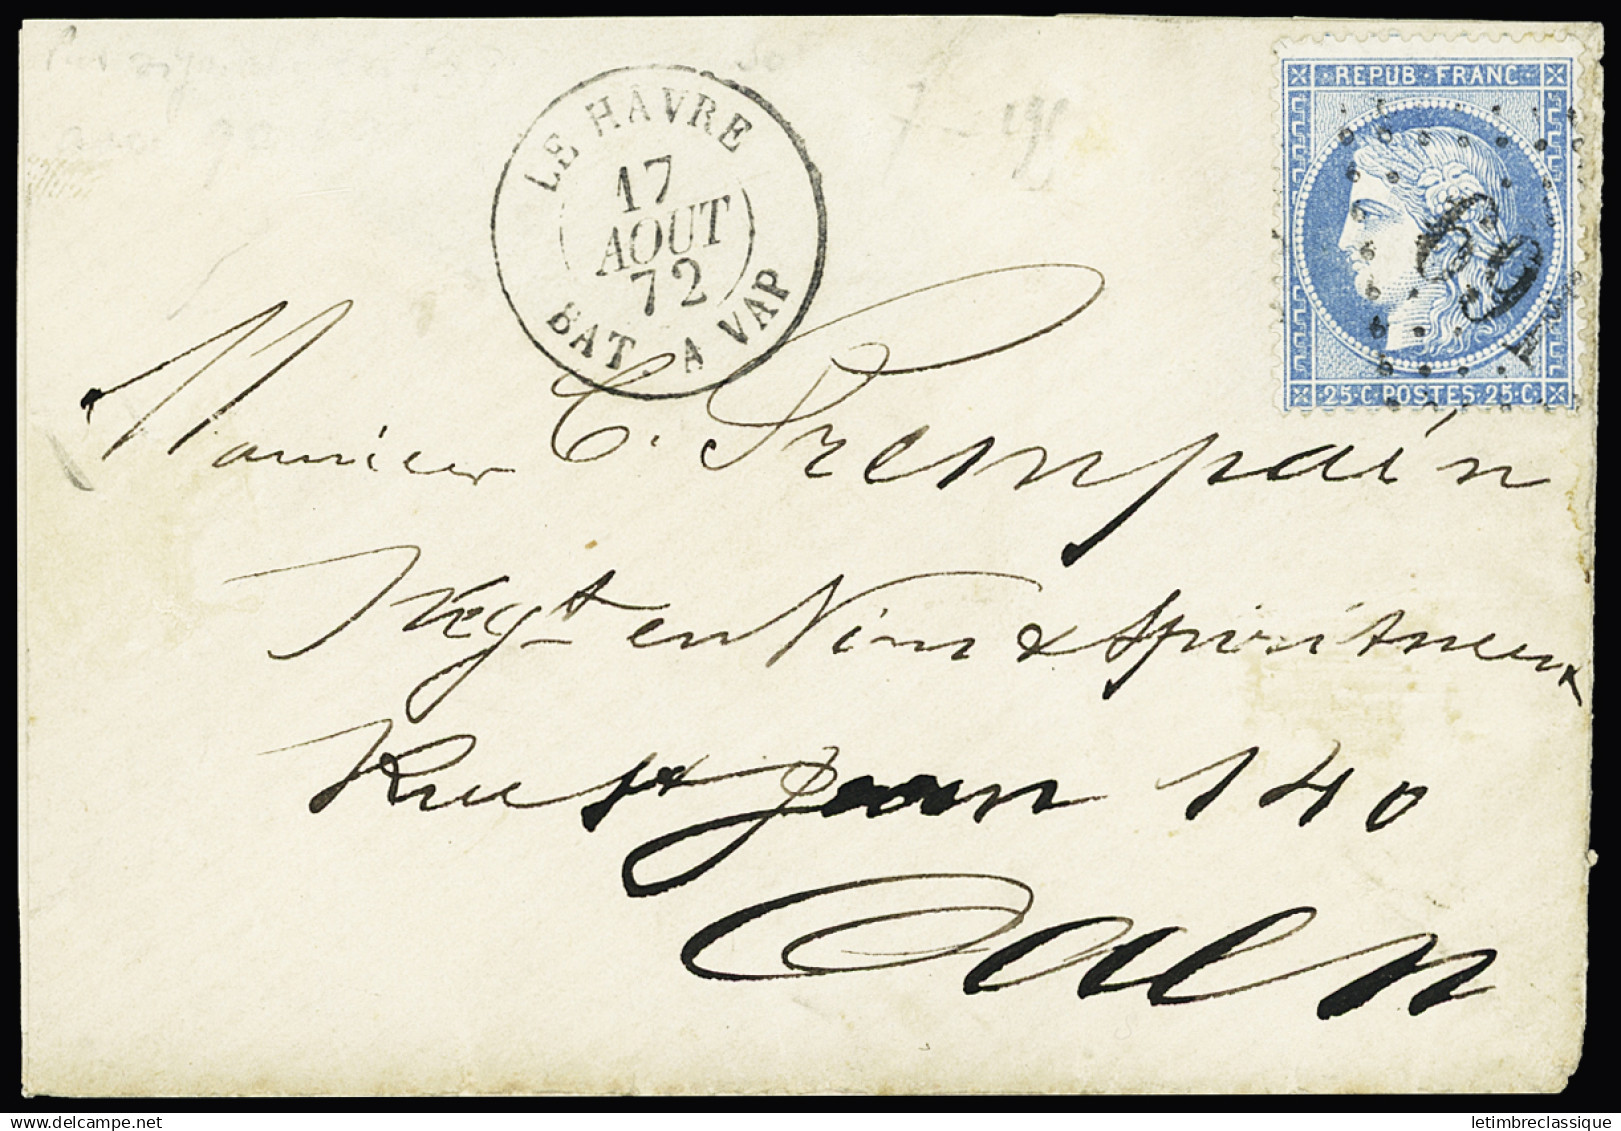 LE HAVRE
17
AOUT
72
BAT. A VAP
REPUB FRANC
25 C POSTES 25 C
Monsieur C. Prempain
Negt en Vins & Spiritueux
Rue St Jean 140
Caen
delcampe.net
letimbreclassique